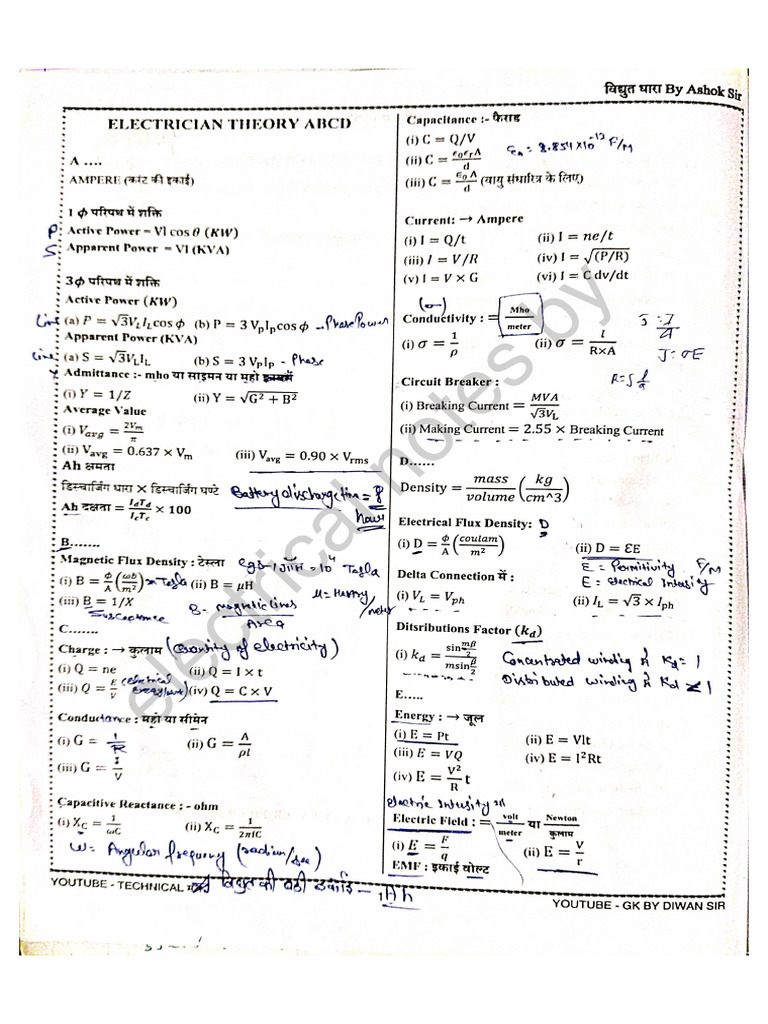 विद्युत धारा By Ashok Sir
ELECTRICIAN THEORY ABCD
A ....
AMPERE (करंट की इकाई)
1 ϕ परिपथ में शक्ति
P Active Power = VI cos θ (KW)
S Apparent Power = VI (KVA)
3ϕ परिपथ में शक्ति
Active Power (KW)
Line (a) P = √3V_L I_L cos ϕ (b) P = 3 V_p I_p cos ϕ - Phase Power
Apparent Power (KVA)
Line (a) S = √3V_L I_L (b) S = 3 V_p I_p - Phase
Y Admittance :- mho या साइमन या म्हो
(i) Y = 1/Z (ii) Y = √(G² + B²)
Average Value
(i) V_avg = 2V_m/π
(ii) V_avg = 0.637 × V_m (iii) V_avg = 0.90 × V_rms
Ah क्षमता
डिस्चार्जिंग धारा × डिस्चार्जिंग घण्टे Battery discharge time = 8
Ah दक्षता = I_d T_d / I_c T_c × 100 hour
B.......
Magnetic Flux Density : टेस्ला cgs - 1 गॉस = 10⁴ Tesla
(i) B = ϕ/A (ωb/m²) Tesla (ii) B = μH μ = Henry/meter
(iii) B = 1/X B = magnetic lines / Area
Susceptance
C.......
Charge : → कुलाम (Quantity of electricity)
(i) Q = ne (ii) Q = I × t
(iii) Q = E/V (electrical energy/volt) (iv) Q = C × V
Conductance : म्हो या सीमेन
(i) G = 1/R (ii) G = A/ρl
(iii) G = I/V
Capacitive Reactance : - ohm
(i) X_C = 1/ωC (ii) X_C = 1/2πfC
ω = Angular frequency (radian/sec)
YOUTUBE - TECHNICAL
विद्युत की बड़ी इकाई - Ah
1
Capacitance :- फैराड
(i) C = Q/V
(ii) C = ϵ₀ϵ_r A/d ϵ₀ = 8.854×10⁻¹² F/M
(iii) C = ϵ₀ A/d (वायु संधारित्र के लिए)
Current: → Ampere
(i) I = Q/t (ii) I = ne/t
(iii) I = V/R (iv) I = √(P/R)
(v) I = V × G (vi) I = C dv/dt
(σ)
Conductivity : = Mho/meter J = I/a
(i) σ = 1/ρ (ii) σ = l/R×A J = σE
R = ρ l/a
Circuit Breaker :
(i) Breaking Current = MVA/√3V_L
(ii) Making Current = 2.55 × Breaking Current
D......
Density = mass/volume (kg/cm^3)
Electrical Flux Density: D
(i) D = ϕ/A (coutam/m²) (ii) D = ƐE
Ɛ = Permitivity F/M
Delta Connection में : E = Electrical Intensity
(i) V_L = V_ph (ii) I_L = √3 × I_ph
Ditsributions Factor (k_d)
(i) k_d = sin mβ/2 / m sin β/2 Concentrated winding में Kd = 1
Distributed winding में Kd < 1
E.....
Energy : → जूल
(i) E = Pt (ii) E = VIt
(iii) E = VQ (iv) E = I²Rt
(iv) E = V²/R t
Electric Intensity या
Electric Field : = volt/meter या Newton/कुलाम
(i) E = F/q (ii) E = V/r
EMF : इकाई वोल्ट
YOUTUBE - GK BY DIWAN SIR
electrical notes by